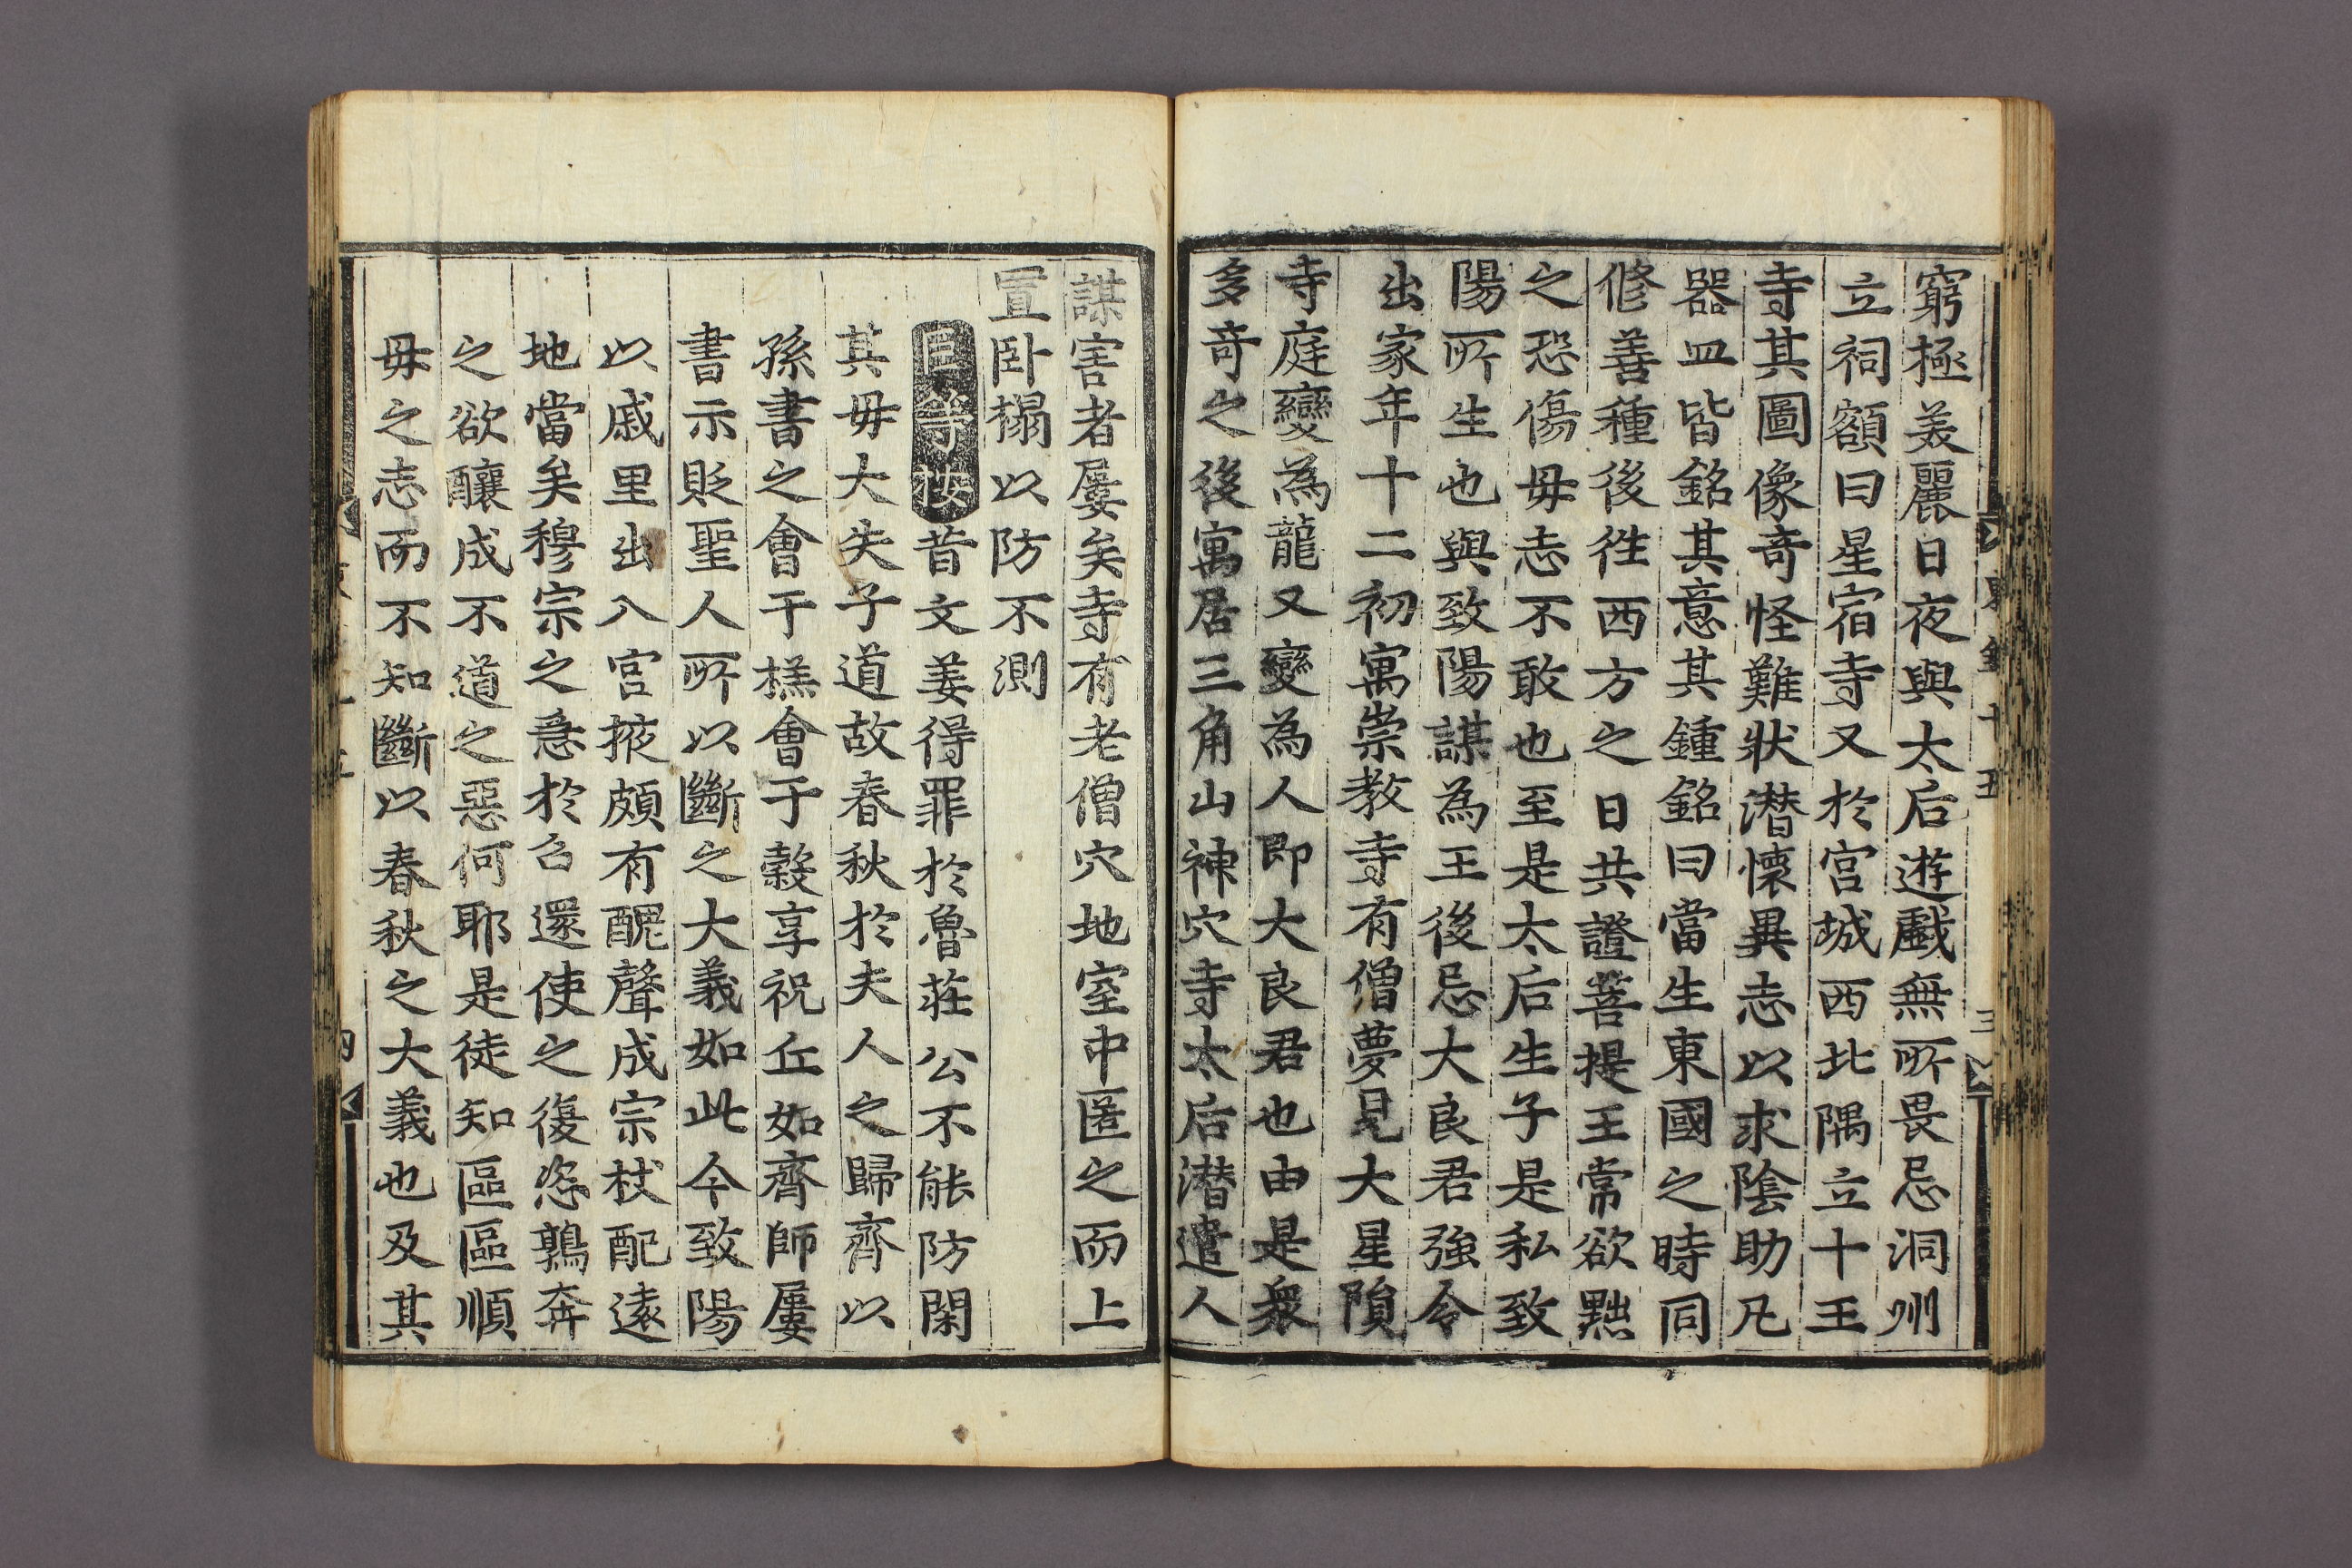 窮極美麗日夜與太后遊戱無所畏忌洞州
立祠額曰星宿寺又於宮城西北隅立十王
寺其圖像竒怪難狀潜懷異志以求陰助凡
器皿皆銘其意其鍾銘曰當生東國之時同
修善種後徃西方之日共證菩提王常欲黜
之恐傷毋志不敢也至是太后生子是私致
陽所生也與致陽謀為王後忌大良君強令
出家年十二初寓崇教寺有僧夢見大星隕
寺庭變為龍又變為人即大良君也由是衆
多竒之後寓居三角山神穴寺太后潜遣人
謀害者屢矣寺有老僧穴地室中匿之而上
置卧榻以防不測
臣等按昔文姜得罪於魯莊公不能防閑
其毋大失子道故春秋於夫人之歸齊以
孫書之會于禚會于穀享祝丘如齊師屢
書示貶聖人所以斷之大義如此今致陽
以戚里出入宮掖頗有醜聲成宗杖配遠
地當矣穆宗之急於召還使之復恣鶉奔
之欲釀成不道之惡何耶是徒知區區順
毋之志而不知斷以春秋之大義也及其